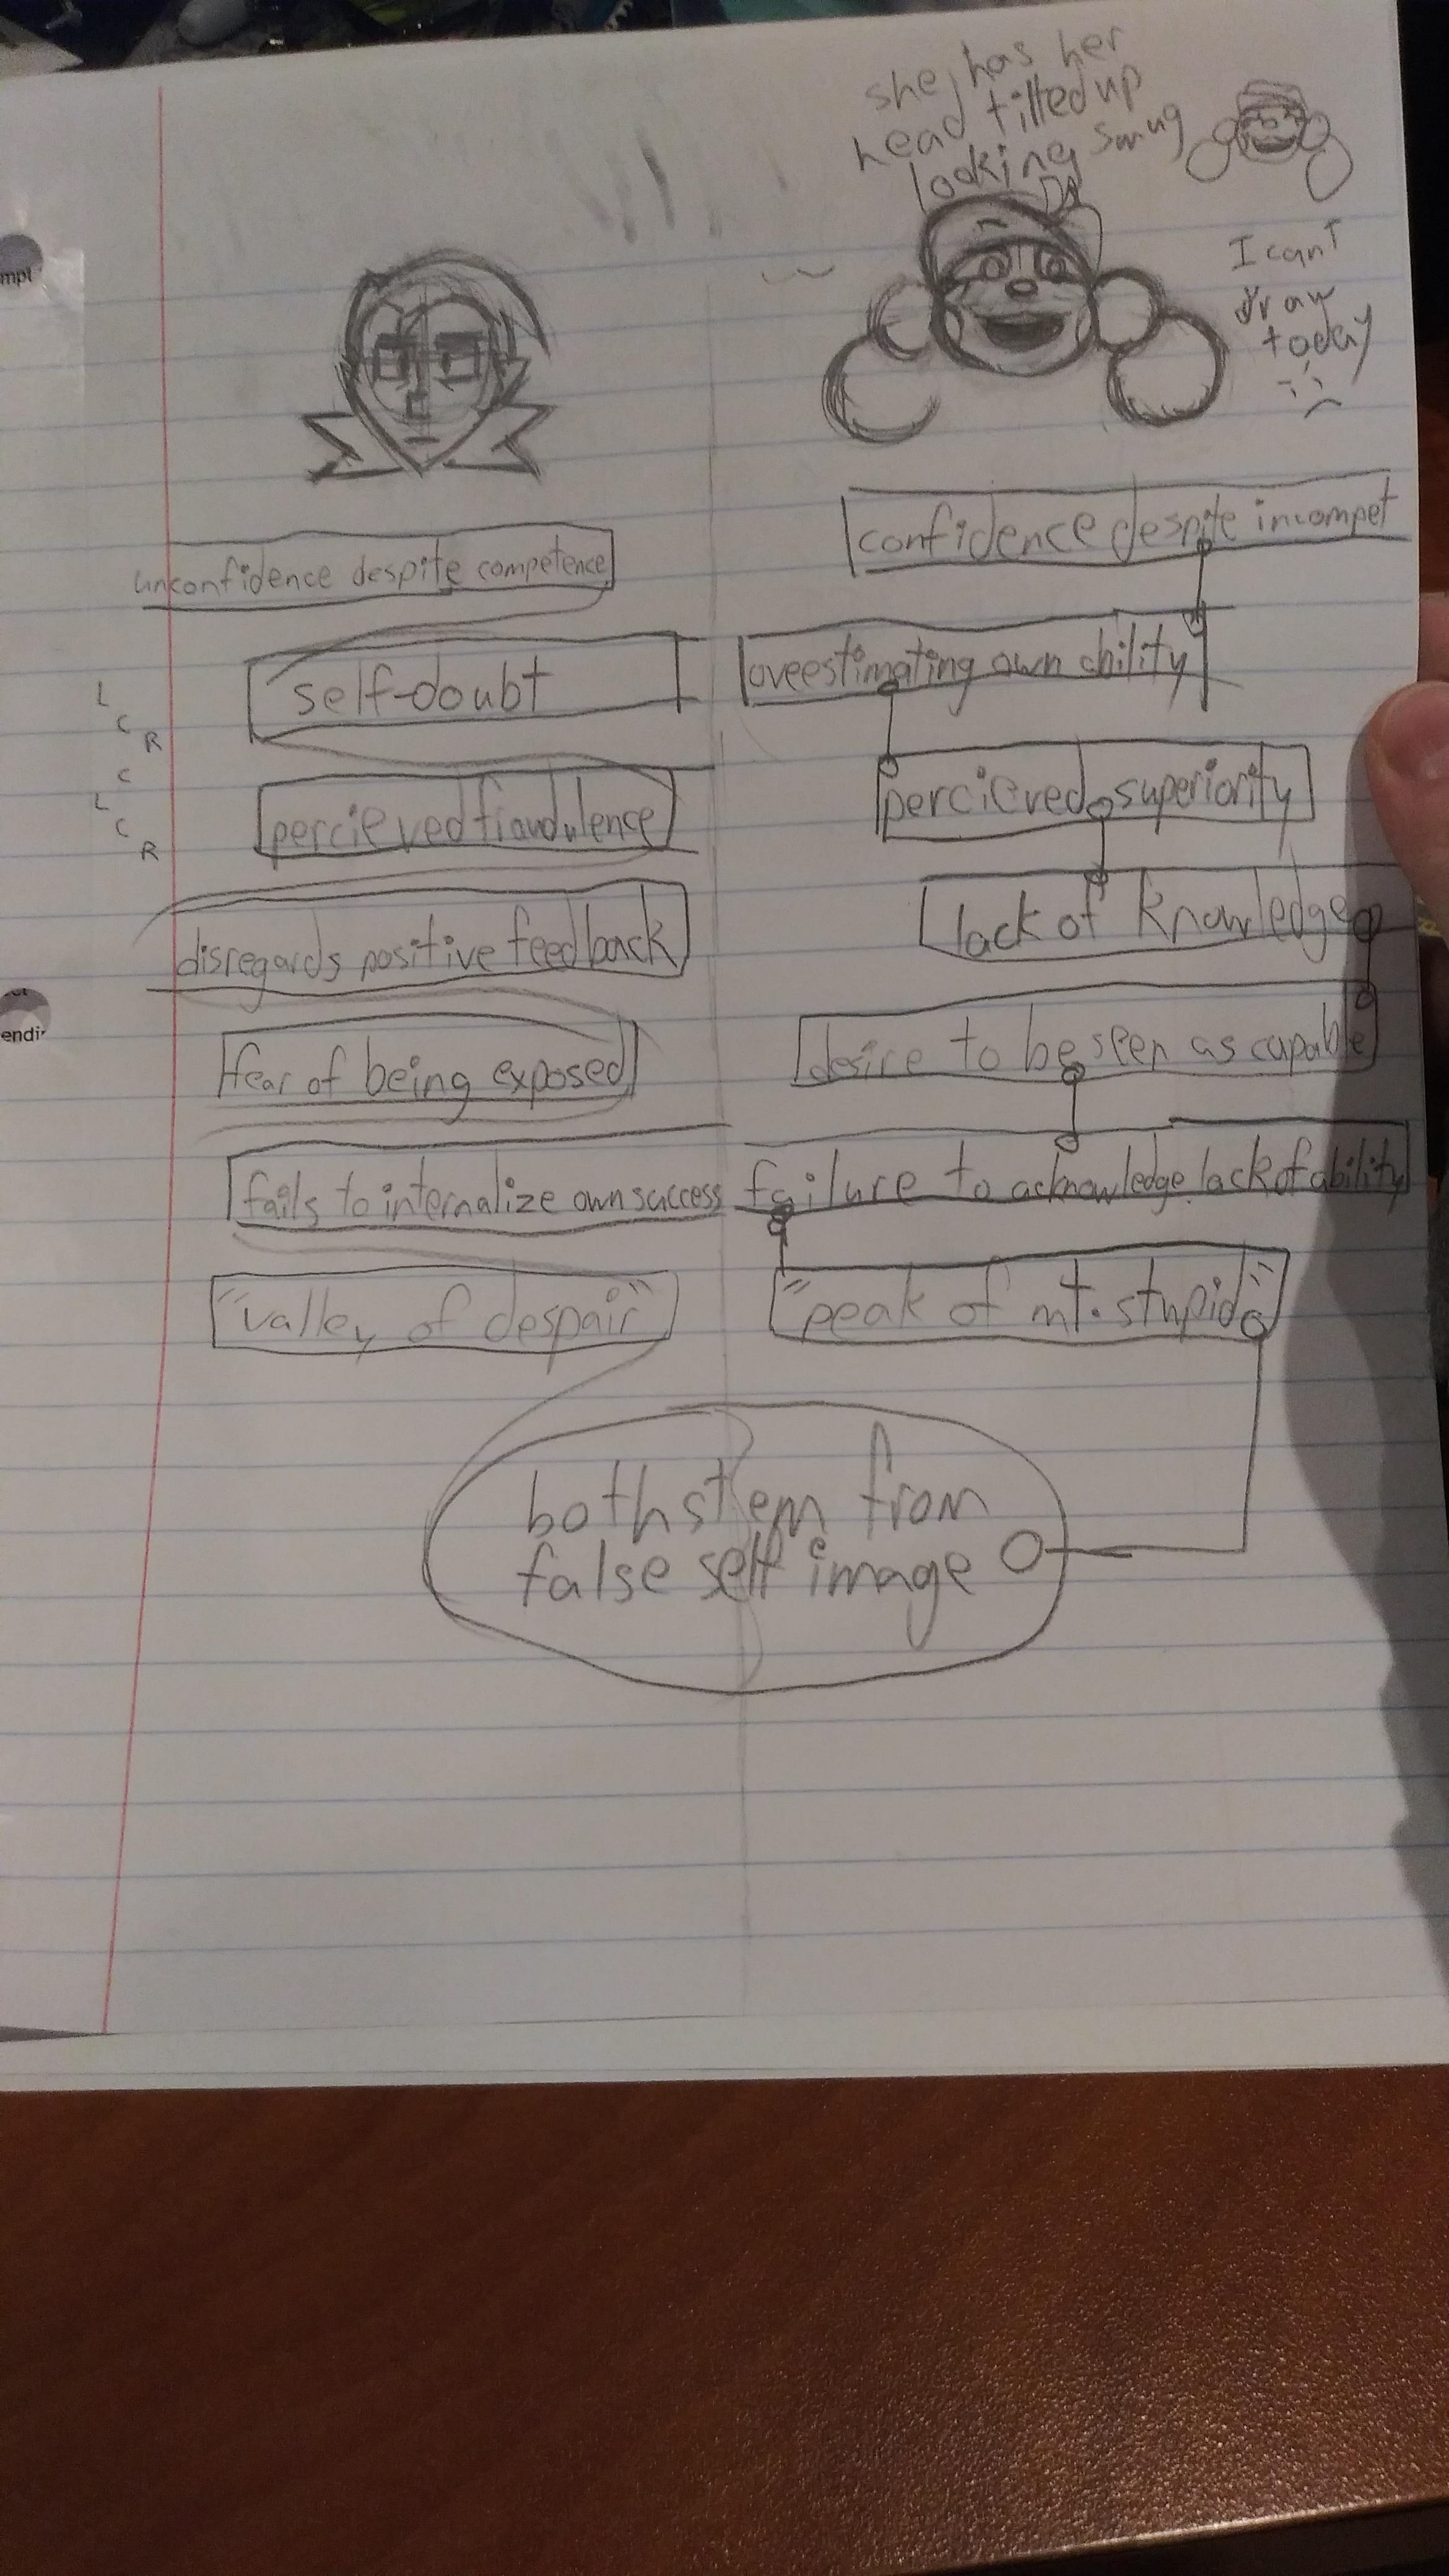 she has her
head tilted up
looking smug
I cant
draw
today
:(
mpt
confidence despite incompet
unconfidence despite competence
self-doubt
oveestimating own ability
L
C
R
C
L
C
R
percieved fraudulence
percieved superiority
disregards positive feedback
lack of knowledge
fear of being exposed
desire to be seen as capable
endi
fails to internalize own success
failure to acknowledge lack of ability
"valley of despair"
"peak of mt. stupid"
both stem from
false self image